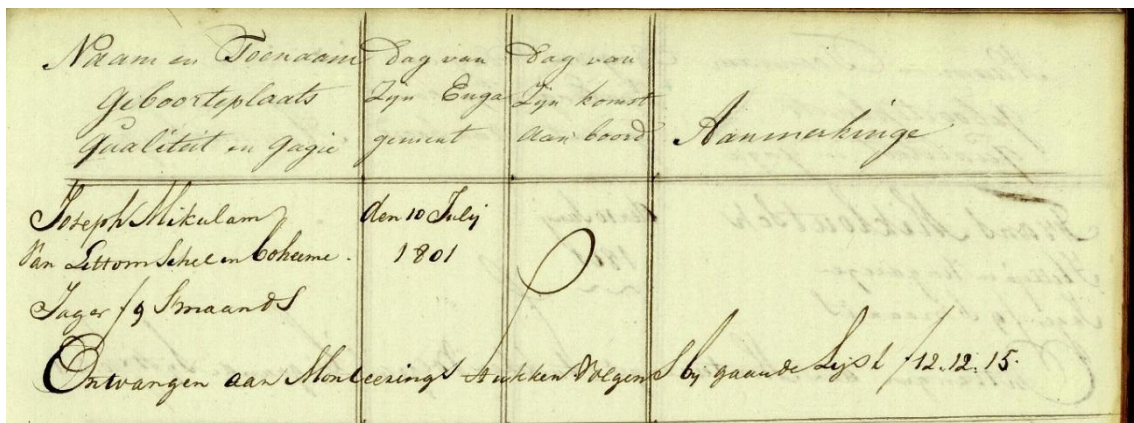 Naam en Toenaam
Geboorteplaats
Qualiteit en gagie
Dag van
Zijn Enga
gement
Dag van
Zijn komst
aan boord
Aanmerkinge
Joseph Mikulam
Van Lettomschel en Boheeme.
den 10 Julij
1801
Jager f 9 Smaands
Ontvangen aan Monteerings Stukken Volgens bij gaande Lijst f 12.12.15.